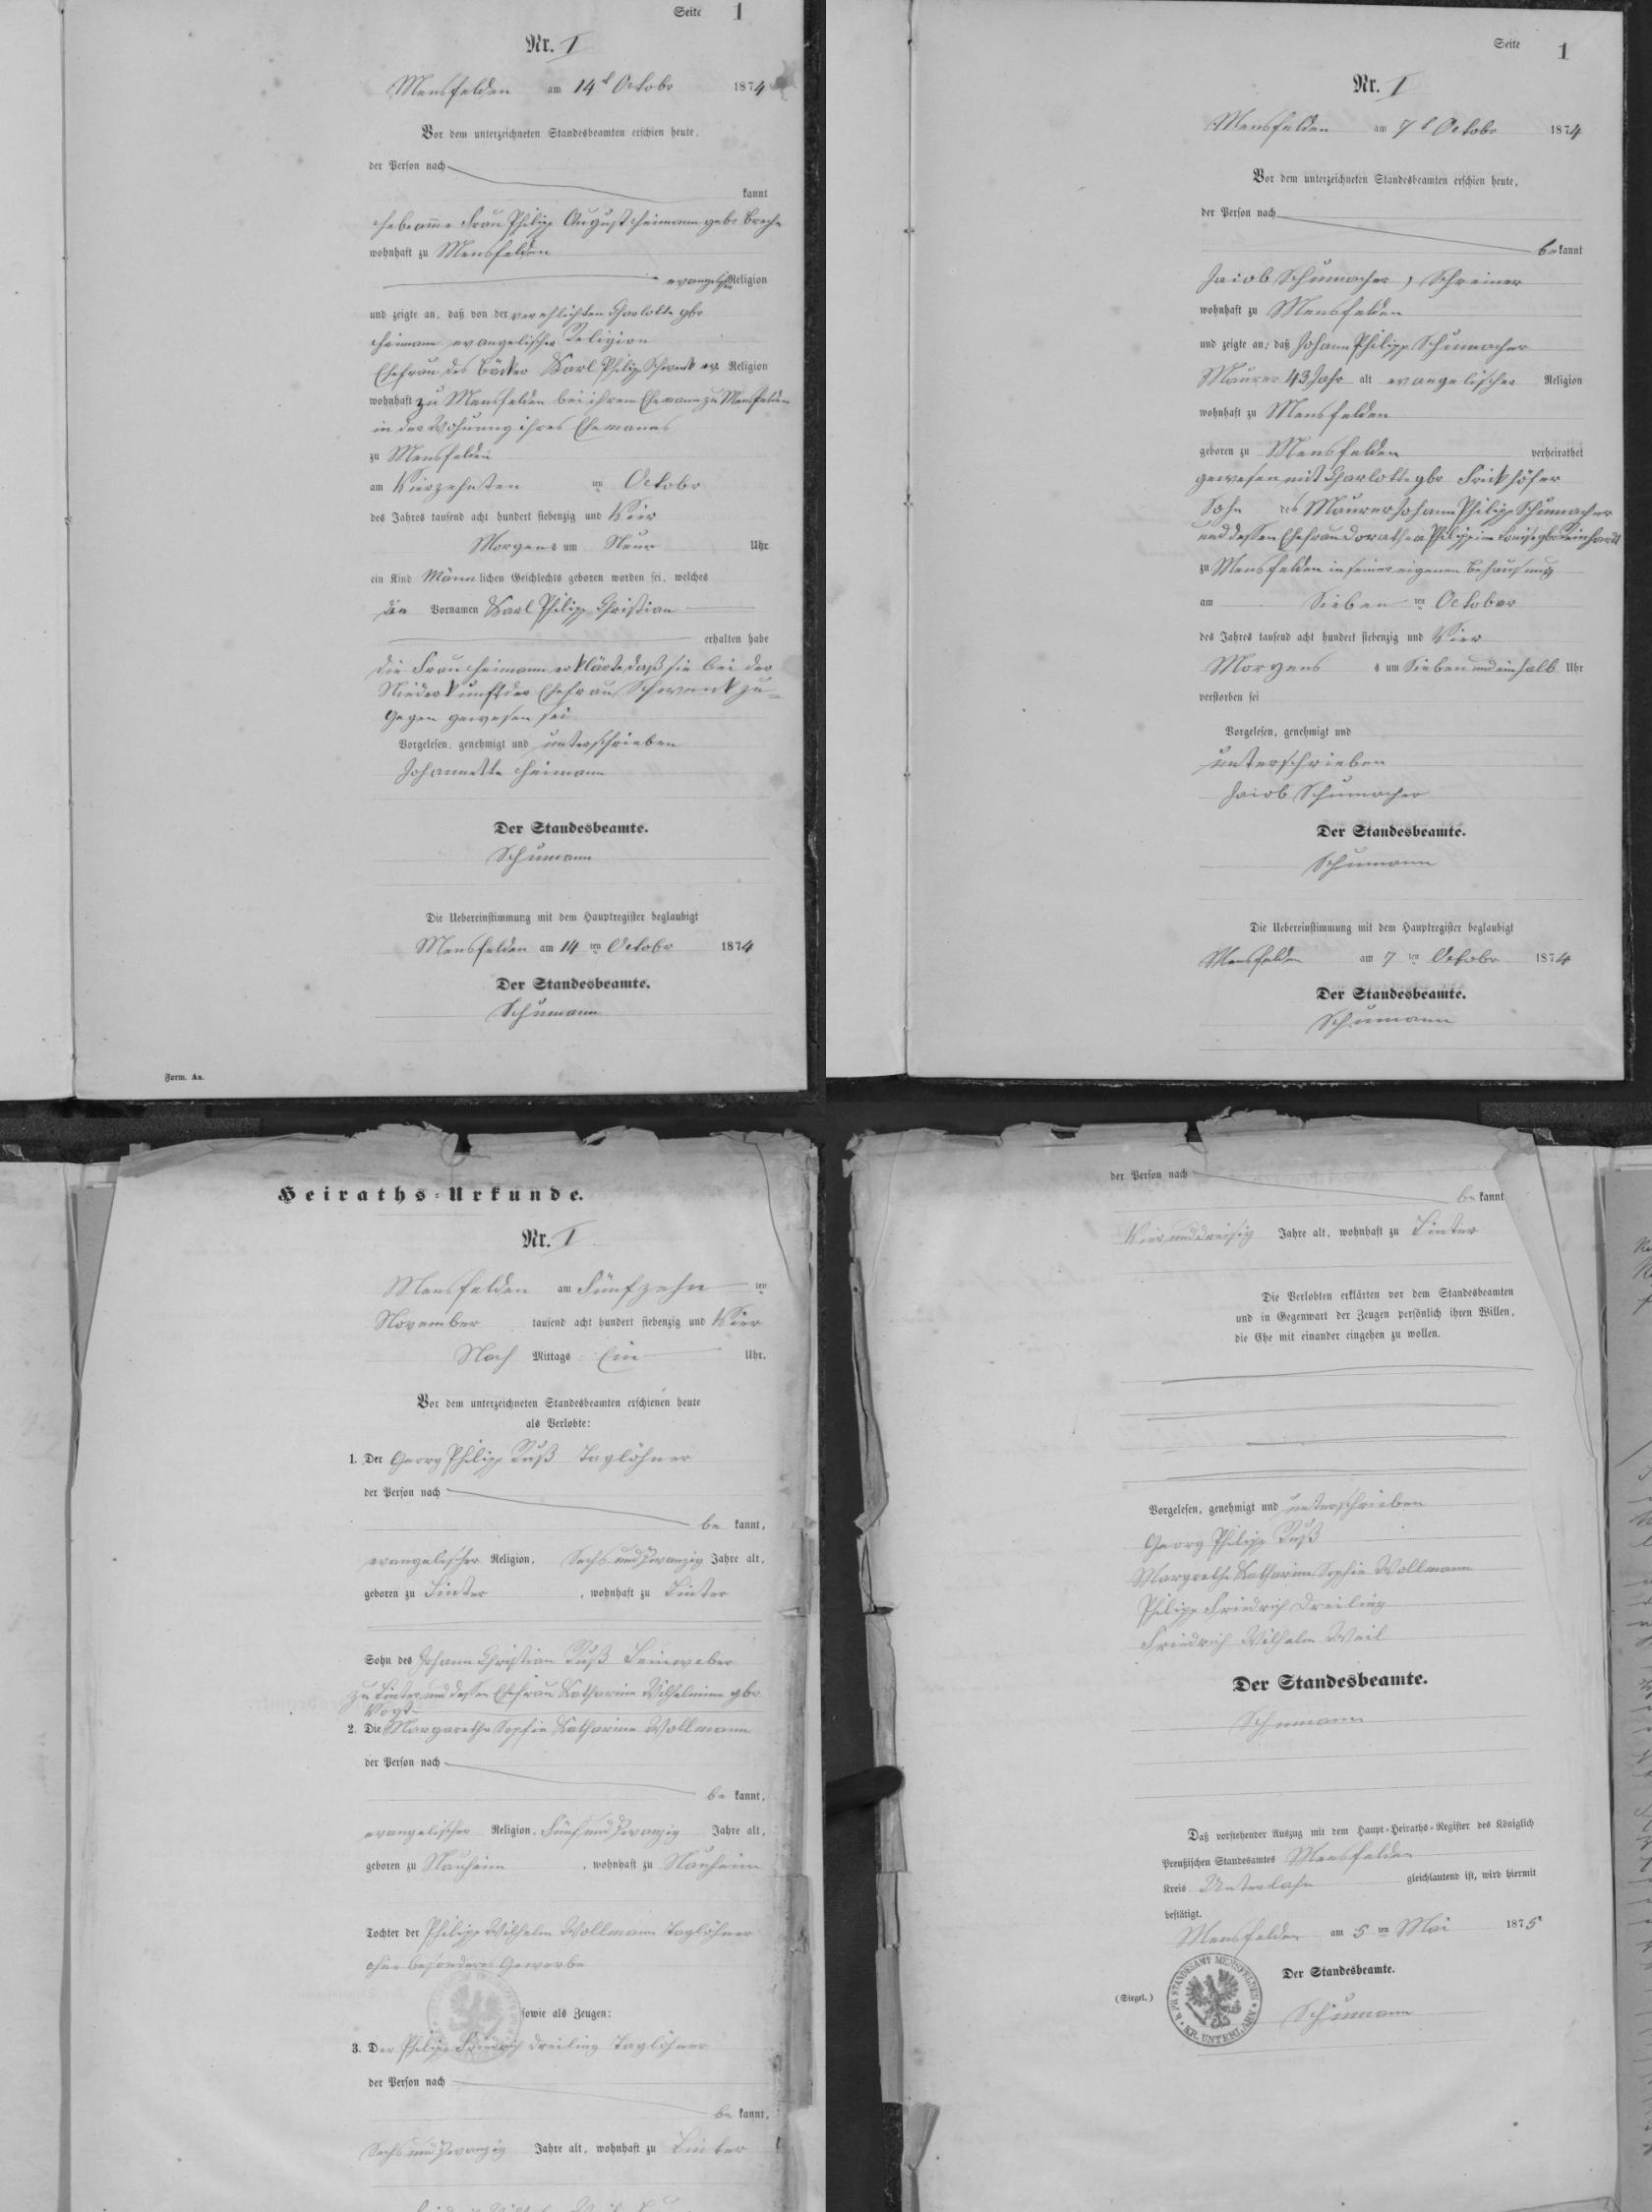 Seite 1
Nr. I
Mensfelden am 14t Octobr 1874
Vor dem unterzeichneten Standesbeamten erschien heute,
der Person nach
kannt
Hebamme Frau Philipp August Heimann gebr
wohnhaft zu Mensfelden
evangelischer Religion
und zeigte an, daß von der verehlichten Charlotte gbr
Heimann evangelischer Religion
Ehefrau des Bäcker Karl Philipp Schwenk ev. Religion
wohnhaft zu Mensfelden bei ihrem Ehemann zu Mensfelden
in der Wohnung ihres Ehemanns
zu Mensfelden
am Vierzehnten ten Octobr
des Jahres tausend acht hundert siebenzig und Vier
Morgens um Neun Uhr
ein Kind Männlichen Geschlechts geboren worden sei, welches
die Vornamen Karl Philipp Christian
erhalten habe
die Frau Heimann erklärte daß sie bei der
Niederkunft der Ehefrau Schwenk zu=
gegen gewesen sei
Vorgelesen, genehmigt und unterschrieben
Johannette Heimann
Der Standesbeamte.
Schumann
Die Uebereinstimmung mit dem Hauptregister beglaubigt
Mensfelden am 14 ten Octobr 1874
Der Standesbeamte.
Schumann
Form. Aa.
Seite 1
Nr. I
Mensfelden am 7t Octobr 1874
Vor dem unterzeichneten Standesbeamten erschien heute,
der Person nach
bekannt
Jacob Schumacher, Schreiner
wohnhaft zu Mensfelden
und zeigte an, daß Johann Philipp Schumacher
Maurer 43 Jahr alt evangelischer Religion
wohnhaft zu Mensfelden
geboren zu Mensfelden verheirathet
gewesen mit Charlotte gbr Frickhöfer
Sohn des Maurer Johann Philipp Schumacher
und dessen Ehefrau Dorathea Philippine Louise gbr Reinhardt
zu Mensfelden in seiner eigenen Behausung
am Sieben ten October
des Jahres tausend acht hundert siebenzig und Vier
Morgens s um Sieben und ein halb Uhr
verstorben sei
Vorgelesen, genehmigt und
unterschrieben
Jacob Schumacher
Der Standesbeamte.
Schumann
Die Uebereinstimmung mit dem Hauptregister beglaubigt
Mensfelden am 7 ten Octobr 1874
Der Standesbeamte.
Schumann
Heiraths-Urkunde.
Nr. I
Mensfelden am Fünfzehn ten
November tausend acht hundert siebenzig und Vier
Nach Mittags Ein Uhr.
Vor dem unterzeichneten Standesbeamten erschienen heute
als Verlobte:
1. Der Georg Philipp Ruß Taglöhner
der Person nach
be kannt,
evangelischer Religion, Sechs und Zwanzig Jahre alt,
geboren zu Linter, wohnhaft zu Linter
Sohn des Johann Christian Ruß Leinweber
zu Linter und dessen Ehefrau Katharine Wilhelmine gbr
Vogt
2. Die Margarethe Sophie Katharine Wollmann
der Person nach
be kannt,
evangelischer Religion, Fünf und Zwanzig Jahre alt,
geboren zu Nauheim, wohnhaft zu Nauheim
Tochter der Philipp Wilhelm Wollmann Taglöhner
ohne besonderes Gewerbe
sowie als Zeugen:
3. Der Philipp Friedrich Dreiling Taglöhner
der Person nach
be kannt,
Sechs und Zwanzig Jahre alt, wohnhaft zu Linter
der Person nach
be kannt
Vier und dreisig Jahre alt, wohnhaft zu Linter
Die Verlobten erklärten vor dem Standesbeamten
und in Gegenwart der Zeugen persönlich ihren Willen,
die Ehe mit einander eingehen zu wollen.
Vorgelesen, genehmigt und unterschrieben
Georg Philipp Ruß
Margrethe Katharine Sophie Wollmann
Philipp Friedrich Dreiling
Friedrich Wilhelm Weil
Der Standesbeamte.
Schumann
Daß vorstehender Auszug mit dem Haupt-Heiraths-Register des Königlich
Preußischen Standesamtes Mensfelden
Kreis Unterlahn gleichlautend ist, wird hiermit
bestätigt.
Mensfelden am 5 ten Mai 1875
Der Standesbeamte.
(Siegel.)
K. PR. STANDESAMT MENSFELDEN
KR. UNTERLAHN
Schumann